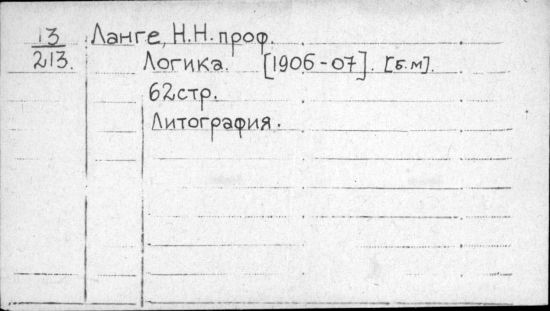 13 Ланге, Н.Н. проф.
213. Логика. [1906-07]. [б.м].
62стр.
Литография.